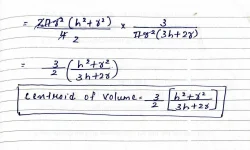 = 2πr² (h²+r²) / 4 2 × 3 / πr²(3h+2r)
= 3/2 (h²+r² / 3h+2r)
centroid of volume = 3/2 [h²+r² / 3h+2r]